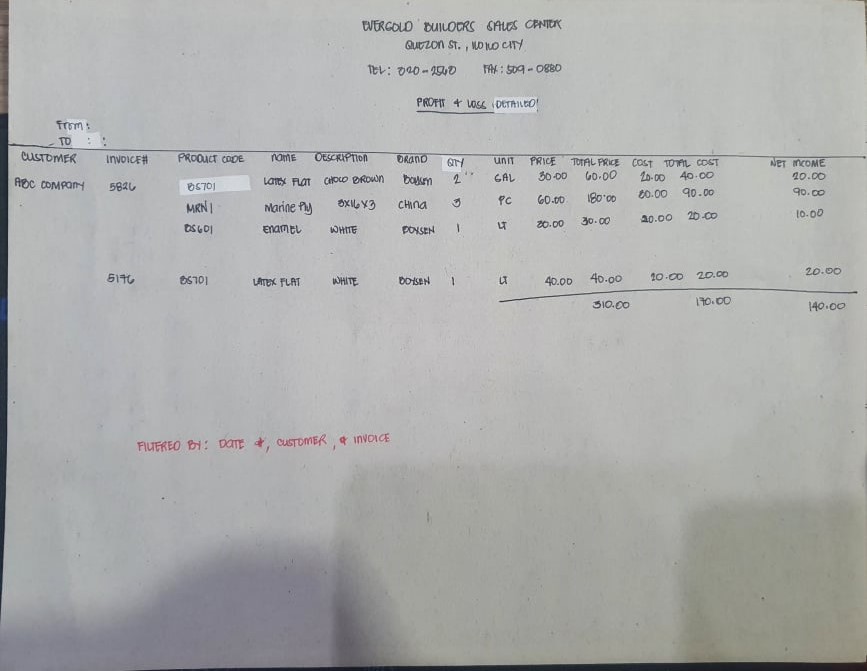 EVERGOLD BUILDERS SALES CENTER
QUEZON ST., ILOILO CITY
TEL: 320-2540 FAX: 509-0880
PROFIT & LOSS (DETAILED)
From:
TO : :
CUSTOMER INVOICE# PRODUCT CODE NAME DESCRIPTION BRAND QTY UNIT PRICE TOTAL PRICE COST TOTAL COST NET INCOME
ABC COMPANY 5826 BS701 LATEX FLAT CHOCO BROWN Boysen 2 GAL 30.00 60.00 20.00 40.00 20.00
MRN1 Marine Ply 3X16X3 CHINA 3 PC 60.00 180.00 30.00 90.00 90.00
BS601 ENAMEL WHITE BOYSEN 1 LT 30.00 30.00 20.00 20.00 10.00
5196 BS701 LATEX FLAT WHITE BOYSEN 1 LT 40.00 40.00 20.00 20.00 20.00
310.00 170.00 140.00
FILTERED BY: DATE, CUSTOMER, & INVOICE